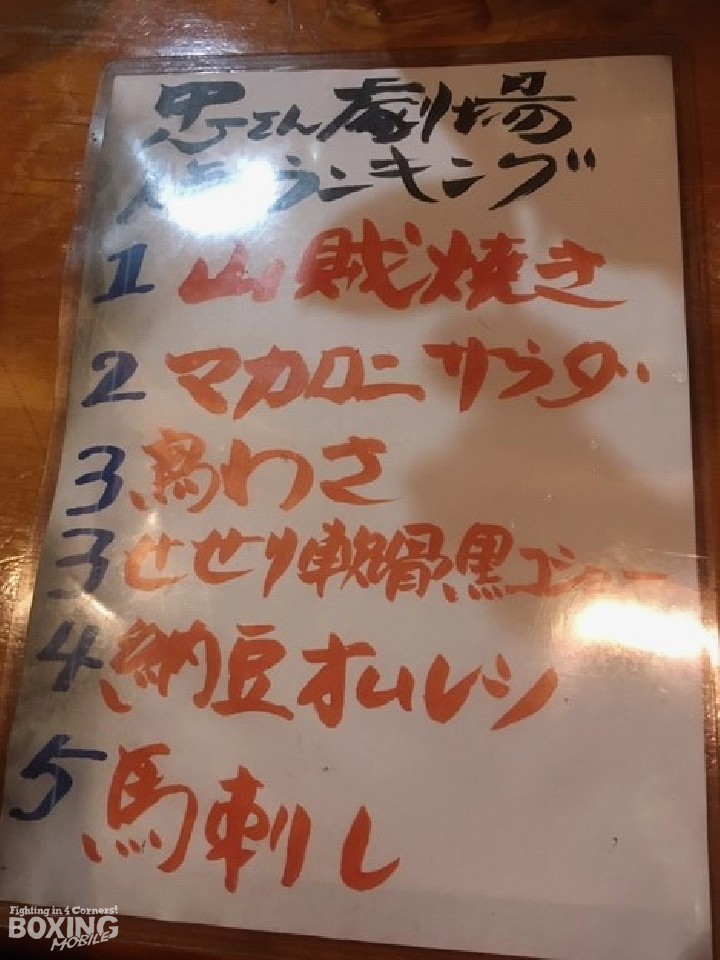 劇場
ランキング
1 山賊焼き
2 マカロニサラダ
3 鳥わさ
3 せせり軟骨黒コショー
4 納豆オムレツ
5 馬刺し
Fighting in 4 Corners!
BOXING
MOBILE